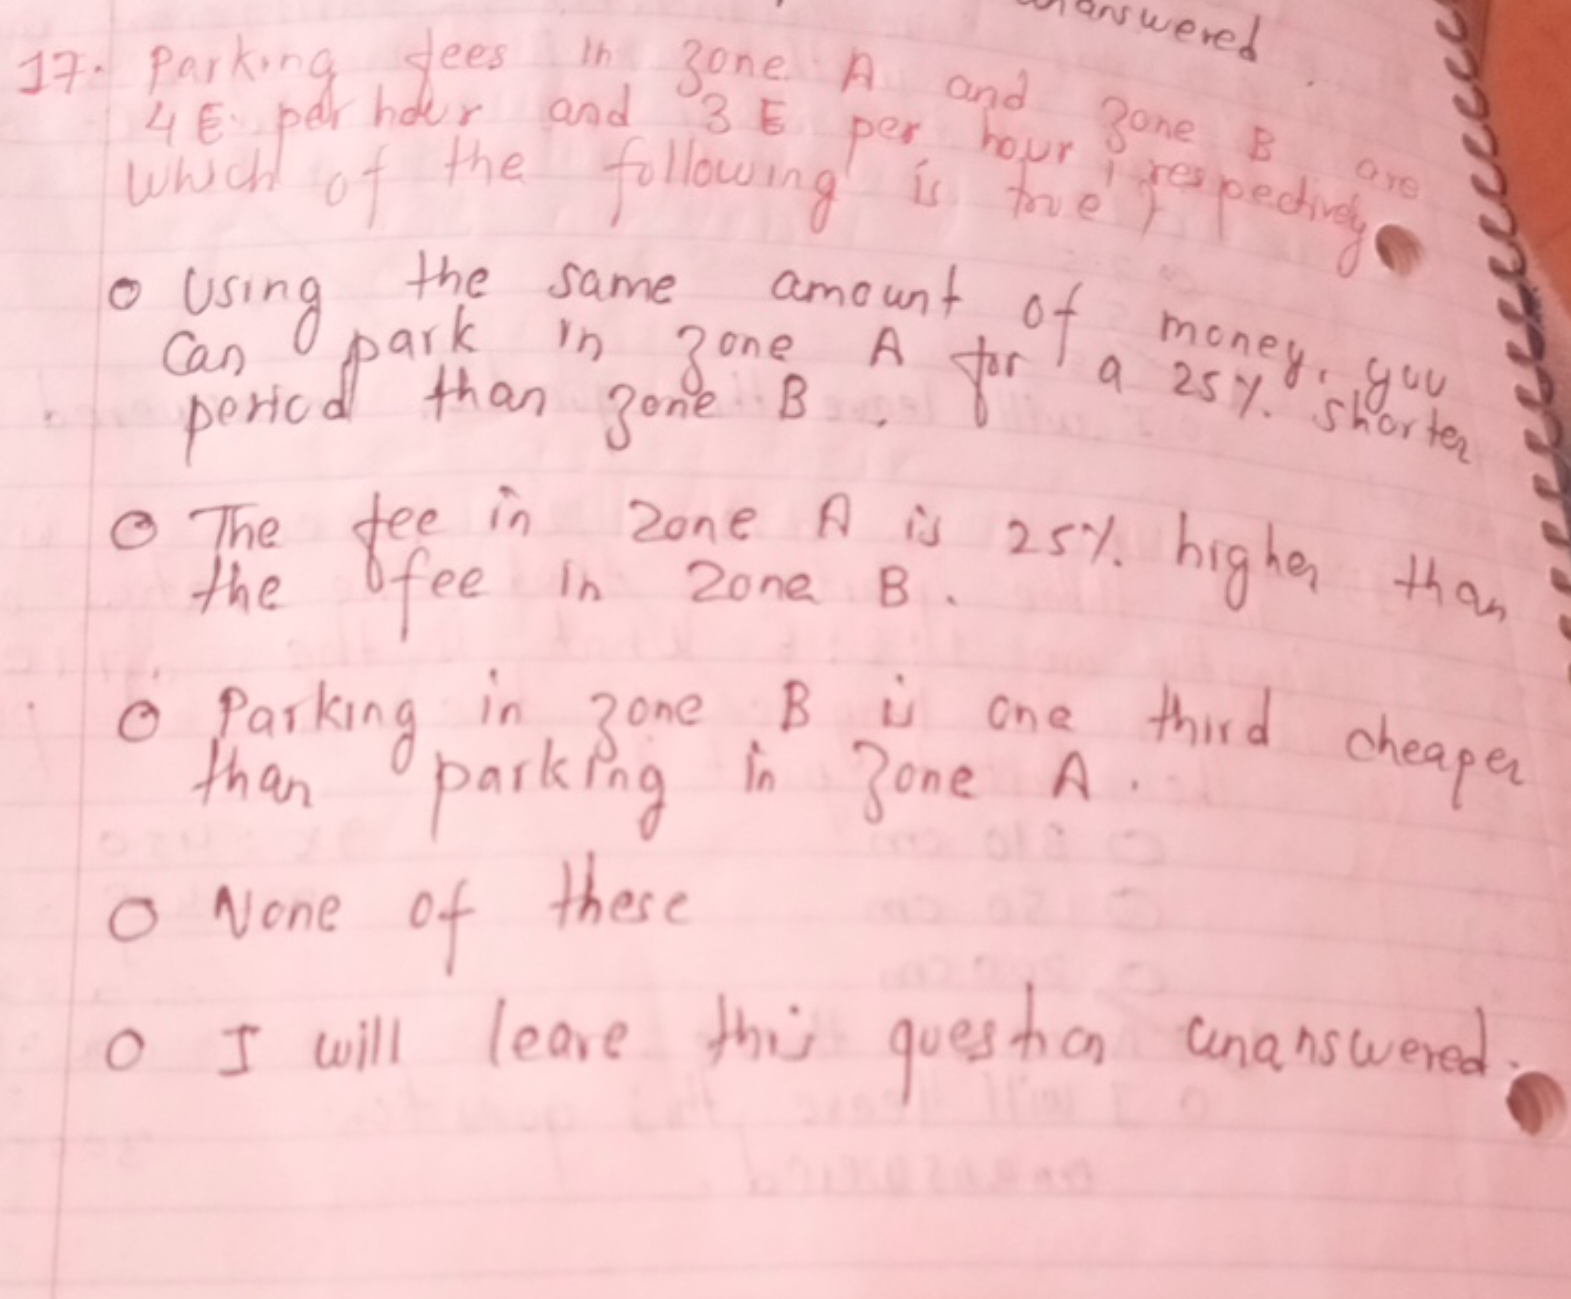 answered.
17. Parking fees in zone A and zone B are
4 E per hour and 3 E per hour, respectively
Which of the following is true?
o Using the same amount of money, you
can park in zone A for a 25% shorter
period than zone B.
o The fee in zone A is 25% higher than
the fee in zone B.
o Parking in zone B is one third cheaper
than parking in zone A.
o None of these
o I will leave this question unanswered.